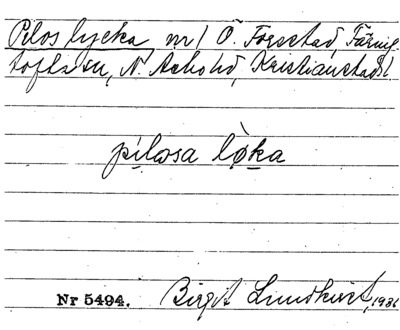 Pelos lycka nr 1 Ö. Forestad, Färing
tofta sn, N. Åsbo hd, Kristianstads l
pilosa løka
Nr 5494. Birgit Lundkvist, 1931